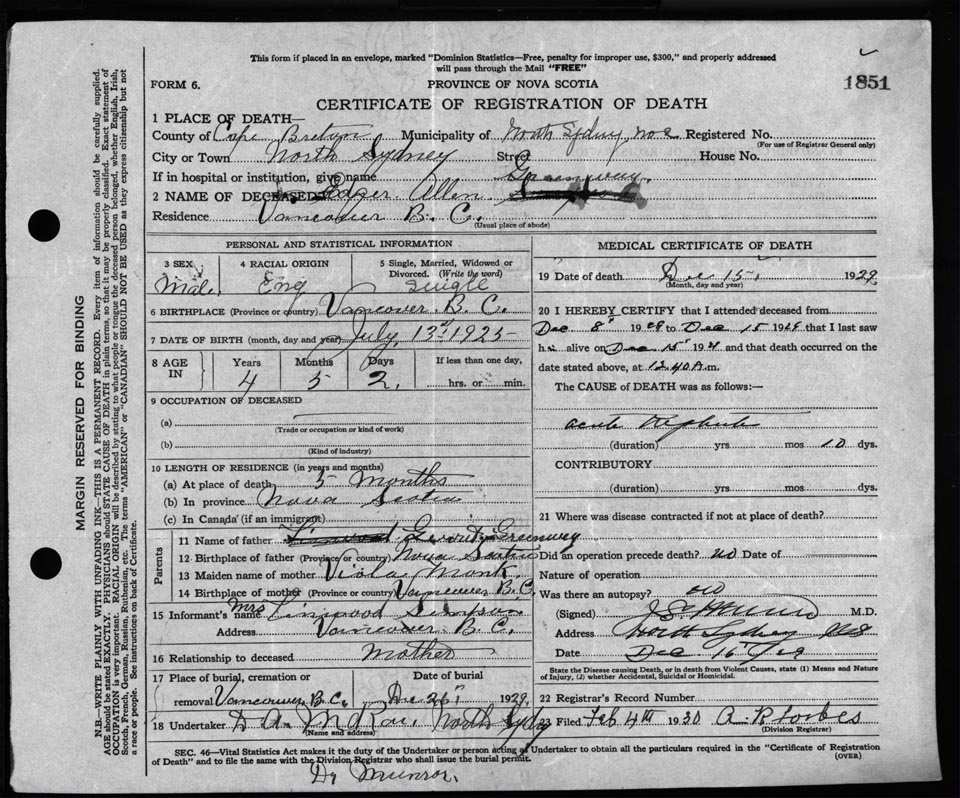 This form if placed in an envelope, marked "Dominion Statistics—Free, penalty for improper use, $300," and properly addressed
will pass through the Mail "FREE"
FORM 6.
PROVINCE OF NOVA SCOTIA
1851
CERTIFICATE OF REGISTRATION OF DEATH
1 PLACE OF DEATH—
County of Cape Breton, Municipality of North Sydney, Registered No.
(For use of Registrar General only)
City or Town North Sydney Street House No.
If in hospital or institution, give name
Greenway
2 NAME OF DECEASED Edger Allen
Residence Vancouver B. C.
(Usual place of abode)
PERSONAL AND STATISTICAL INFORMATION
3 SEX 4 RACIAL ORIGIN 5 Single, Married, Widowed or
Divorced. (Write the word)
Male. Eng Single
6 BIRTHPLACE (Province or country) Vancouver. B. C.
7 DATE OF BIRTH (month, day and year) July, 13th 1925
8 AGE IN Years Months Days If less than one day,
4 5 2. hrs. or min.
9 OCCUPATION OF DECEASED
(a)
(Trade or occupation or kind of work)
(b)
(Kind of industry)
10 LENGTH OF RESIDENCE (in years and months)
(a) At place of death 5 Months
(b) In province Nova Scotia
(c) In Canada (if an immigrant)
Parents
11 Name of father Greenway
12 Birthplace of father (Province or country) Nova Scotia
13 Maiden name of mother Viola Monk
14 Birthplace of mother (Province or country) Vancouver B.C.
15 Informant's name Mrs Linwood Simpson
Address Vancouver B. C.
16 Relationship to deceased Mother
17 Place of burial, cremation or Date of burial
removal Vancouver B.C. Dec 26th 1929.
18 Undertaker North Sydney
(Name and address)
MEDICAL CERTIFICATE OF DEATH
19 Date of death Dec 15th 1929.
(Month, day and year)
20 I HEREBY CERTIFY that I attended deceased from
Dec 8th 1929 to Dec 15 192 that I last saw
h alive on Dec 15th 192 and that death occurred on the
date stated above, at 12.40 A.m.
The CAUSE of DEATH was as follows:—
acute Nephritis
(duration) yrs mos 10 dys.
CONTRIBUTORY
(duration) yrs. mos dys.
21 Where was disease contracted if not at place of death?
Did an operation precede death? no Date of
Nature of operation
Was there an autopsy? no
(Signed) M.D.
Address North Sydney NS
Date Dec 16th/29
State the Disease causing Death, or in death from Violent Causes, state (1) Means and Nature
of Injury, (2) whether Accidental, Suicidal or Homicidal.
22 Registrar's Record Number
23 Filed Feb 4th 1930 A R Forbes
(Division Registrar)
SEC. 46—Vital Statistics Act makes it the duty of the Undertaker or person acting as Undertaker to obtain all the particulars required in the "Certificate of Registration
of Death" and to file the same with the Division Registrar who shall issue the burial permit.
(OVER)
Dr Munroe.
MARGIN RESERVED FOR BINDING
N.B.—WRITE PLAINLY WITH UNFADING INK—THIS IS A PERMANENT RECORD. Every item of information should be carefully supplied.
AGE should be stated EXACTLY. PHYSICIANS should STATE CAUSE OF DEATH in plain terms, so that it may be properly classified. Exact statement of
OCCUPATION is very important. RACIAL ORIGIN will be described by stating to what people or tongue the deceased person belonged, whether English, Irish,
Scotch, French, German, Russian, Ruthenian, etc. The terms "AMERICAN" or "CANADIAN" SHOULD NOT BE USED as they express citizenship but not
a race or people. See instructions on back of Certificate.